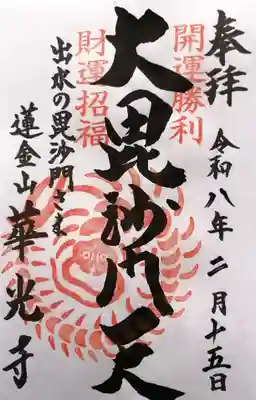 奉拝
令和八年二月十五日
開運勝利
大毘沙門天
財運招福
出水の毘沙門さま
蓮金山
華光寺